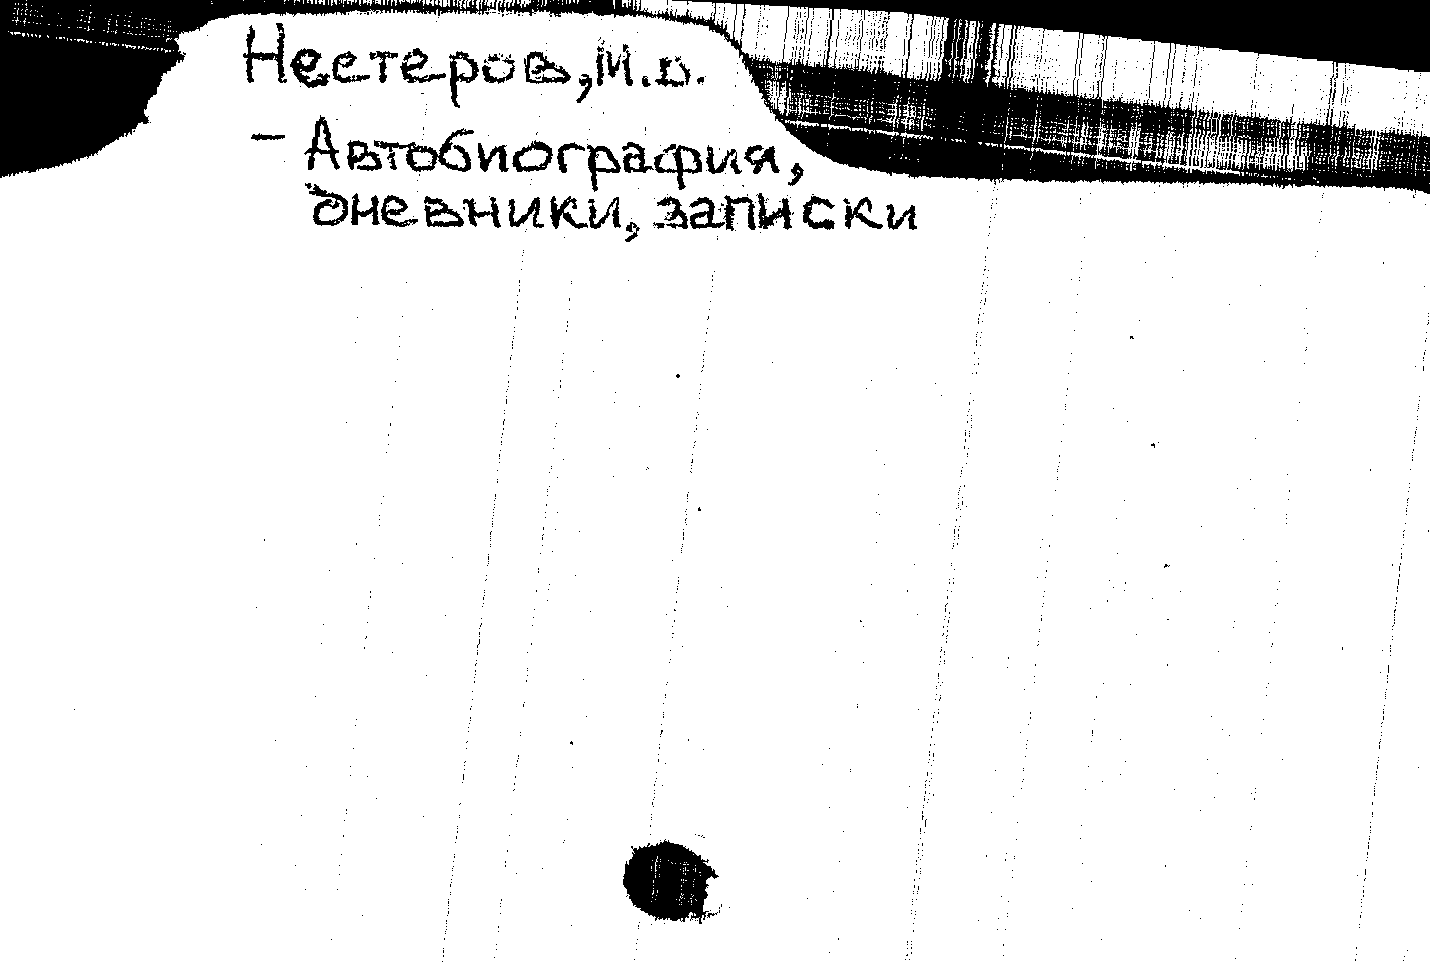 Нестеров, М.В.
– Автобиография,
дневники, записки